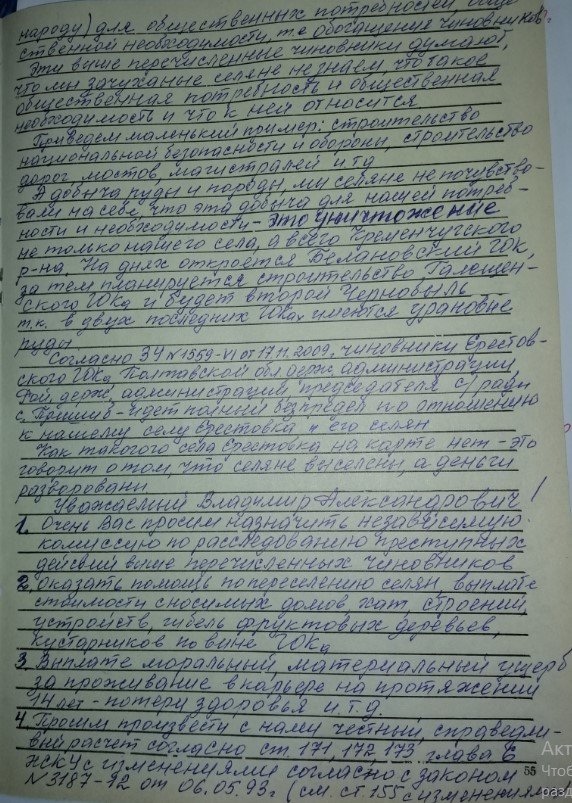 народу) для общественных потребностей обще
ственной необходимости, т.е обогащения чиновников.
Эти выше перечисленные чиновники думают,
что мы зачуханые селяне не знаем, что такое
общественная потребность и общественная
необходимость и что к ней относится
Приведем маленький пример: строительство
национальной безопасности и обороны, строительство
дорог мостов, магистралей и т.д
А добыча руды и породы, мы селяне не почувство-
вали на себе, что эта добыча для нашей потреб-
ности и необходимости - это уничтожение
не только нашего села, а всего Кременчугского
р-на. На днях откроется Белановский ГОК,
за тем планируется строительство Галещен-
ского ГОКа и будет второй Чернобыль
т.к. в двух последних ГОКах имеются урановые
руды
Согласно ЗУ N 1559-VI от 17.11.2009, чиновники Ерестов-
ского ГОКа Полтавской обл держ. администрации,
Рай. держ. администрации председателя с/ради
с. Пришиб - идет полный беспредел по отношению
к нашему селу Еристовка и его селян
Как такогого села Ерестовка на карте нет - это
говорит о том, что селяне выселены, а деньги
разворованы
Уважаемый Владимир Александрович!
1. Очень Вас просим назначить независимую
комиссию по расследованию преступных
действий выше перечисленных чиновников
2. Оказать помощь по переселению селян, выплате
стоимости сносимых домов, хат, строений
устройств, гибель фруктовых деревьев,
кустарников по вине ГОКа
3. Выплате моральный, материальный ущерб
за проживание в карьере на протяжении
14 лет - потери здоровья и т.д.
4. Просим произвести с нами честный, справедли-
вый расчет согласно ст 171, 172, 173 глава 6
ЖКУ с изменениями согласно с законом
N 3187-12 от 06.05.93 г (см. ст. 155 с изменениями
55
Акт
Чтоб
разд